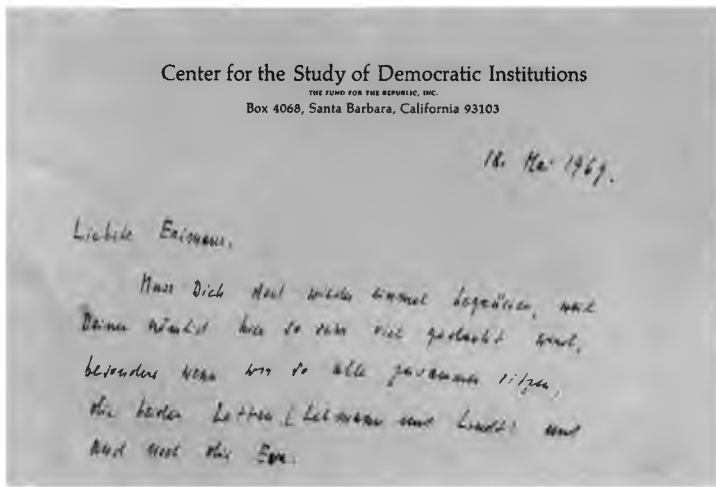 Center for the Study of Democratic Institutions
THE FUND FOR THE REPUBLIC, INC.
Box 4068, Santa Barbara, California 93103
18. Mai 1969.
Liebste
Muss Dich doch wieder einmal begrüssen, weil
Deiner nämlich hier so sehr viel gedacht wird,
besonders wenn wir so alle zusammen sitzen,
die beiden Lotten (Lehmann und Lindt) und
und noch die